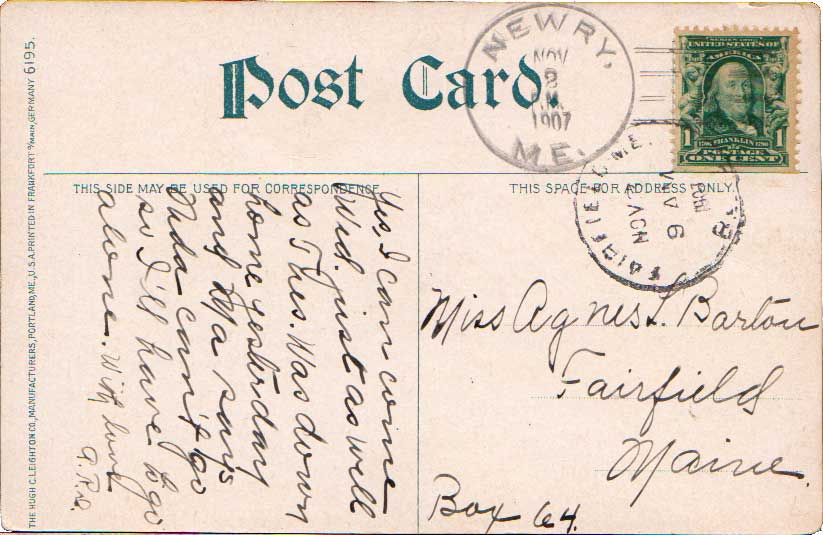 Post Card.
NEWRY,
NOV
2
A.M.
1907
ME.
SERIES 1902
UNITED STATES OF
AMERICA
1 1
1706 FRANKLIN 1790
POSTAGE
ONE CENT
FAIRFIELD ME.
NOV 2
6 PM
1907
THIS SIDE MAY BE USED FOR CORRESPONDENCE
THIS SPACE FOR ADDRESS ONLY.
Yes, I can come
Wed. just as well
as Thes. Was down
home yesterday
and Ma says
Onda can't go
so I'll have to go
alone. With love
Miss Agnes L. Barton
Fairfield
Maine.
Box 64.
THE HUGH C. LEIGHTON CO., MANUFACTURERS, PORTLAND, ME., U.S.A. PRINTED IN FRANKFORT o/MAIN, GERMANY 6195.